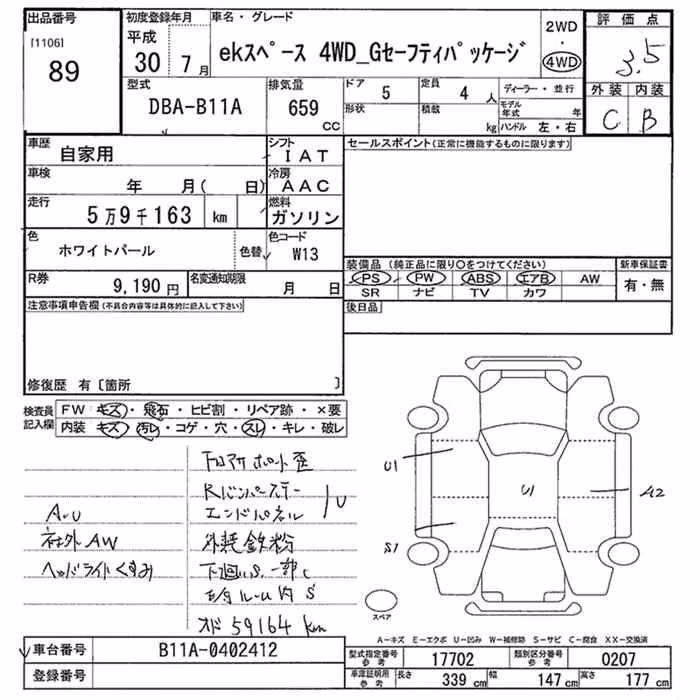 出品番号
[1106]
89
初度登録年月
平成
30 7月
車名・グレード
ekスペース 4WD_Gセーフティパッケージ
2WD
・
4WD
評価点
3.5
外装 内装
C B
型式
DBA-B11A
排気量
659
cc
ドア
5
定員
4 人
形状
積載
kg
ディーラー・並行
モデル年式 年
ハンドル 左・右
車歴
自家用
シフト
IAT
車検
年 月( 日)
冷房
AAC
走行
5万9千163 km
燃料
ガソリン
色
ホワイトパール
色替
色コード
W13
R券
9,190 円
名変通知期限
月 日
セールスポイント(正常に機能するものに限ります)
装備品 (純正品に限り○をつけてください)
新車保証書
PS PW ABS エアB AW
SR ナビ TV カワ
有・無
後日品
注意事項申告欄(不具合内容等は具体的に記入して下さい)
修復歴 有〔箇所 〕
検査員
記入欄
FW キズ・飛石・ヒビ割・リペア跡・×要
内装 キズ・汚レ・コゲ・穴・スレ・キレ・破レ
A・U
社外AW
ヘッドライトくすみ
Rバンパーステー
エンドパネル
U
鉄粉
下廻りS.一部C
ルーム内S
59164 km
U1
U1
A2
S1
スペア
A−キズ E−エクボ U−凹み W−補修跡 S−サビ C−腐食 XX−交換済
車台番号
B11A-0402412
登録番号
型式指定番号
参考
17702
類別区分番号
参考
0207
車庫証明用
参考
長さ
339 cm
幅
147 cm
高さ
177 cm